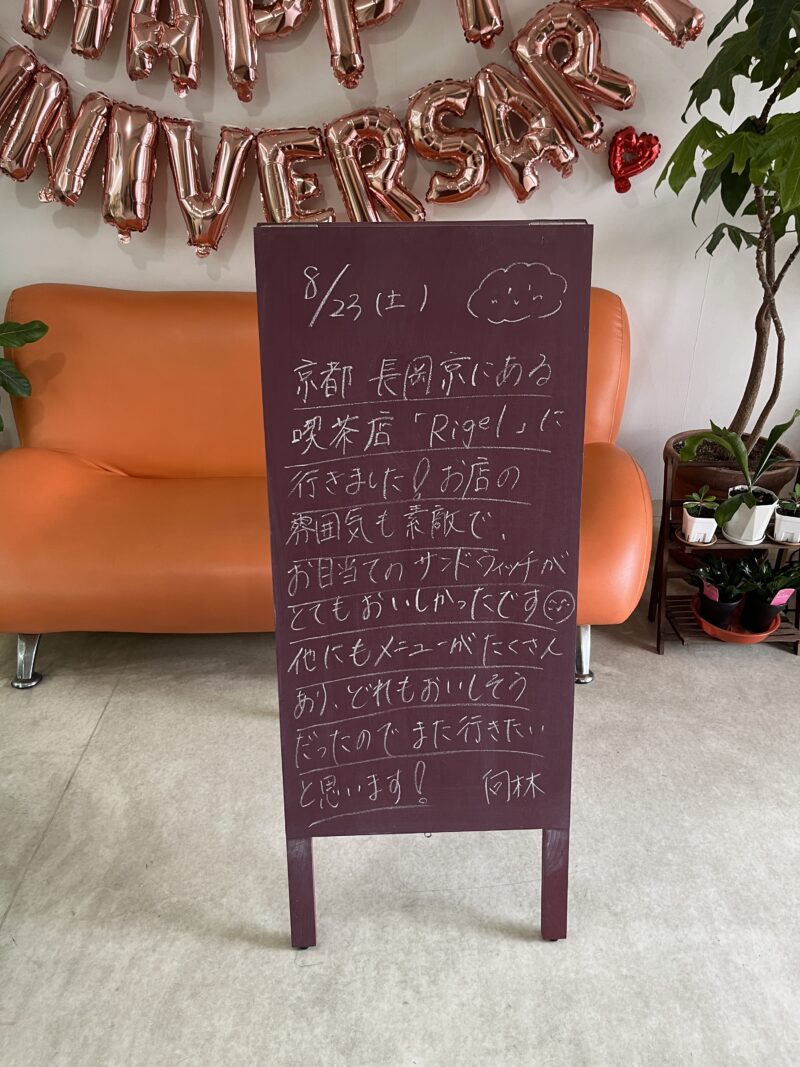 HAPPY
ANNIVERSARY
8/23(土)
京都 長岡京にある
喫茶店「Rigel」に
行きました!お店の
雰囲気も素敵で、
お目当てのサンドウィッチが
とてもおいしかったです
他にもメニューがたくさん
あり、どれもおいしそう
だったのでまた行きたい
と思います! 向林